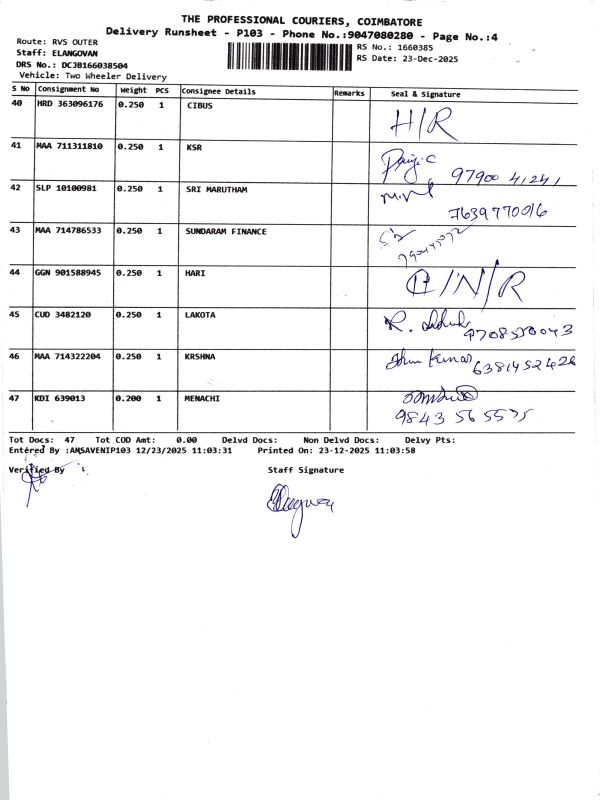 THE PROFESSIONAL COURIERS, COIMBATORE
Delivery Runsheet - P103 - Phone No.:9047080280 - Page No.:4
Route: RVS OUTER
RS No.: 1660385
Staff: ELANGOVAN
RS Date: 23-Dec-2025
DRS No.: DCJB166038504
Vehicle: Two Wheeler Delivery
S No Consignment No Weight PCS Consignee Details Remarks Seal & Signature
40 HRD 363096176 0.250 1 CIBUS H/R
41 MAA 711311810 0.250 1 KSR 97900 41241
42 SLP 10100981 0.250 1 SRI MARUTHAM 7639770016
43 MAA 714786533 0.250 1 SUNDARAM FINANCE
44 GGN 901588945 0.250 1 HARI
45 CUD 3482120 0.250 1 LAKOTA
46 MAA 714322204 0.250 1 KRSHNA Kumar 6381452426
47 KDI 639013 0.200 1 MENACHI 9843 56 5575
Tot Docs: 47 Tot COD Amt: 0.00 Delvd Docs: Non Delvd Docs: Delvy Pts:
Entered By :AMSAVENIP103 12/23/2025 11:03:31 Printed On: 23-12-2025 11:03:58
Verified By Staff Signature